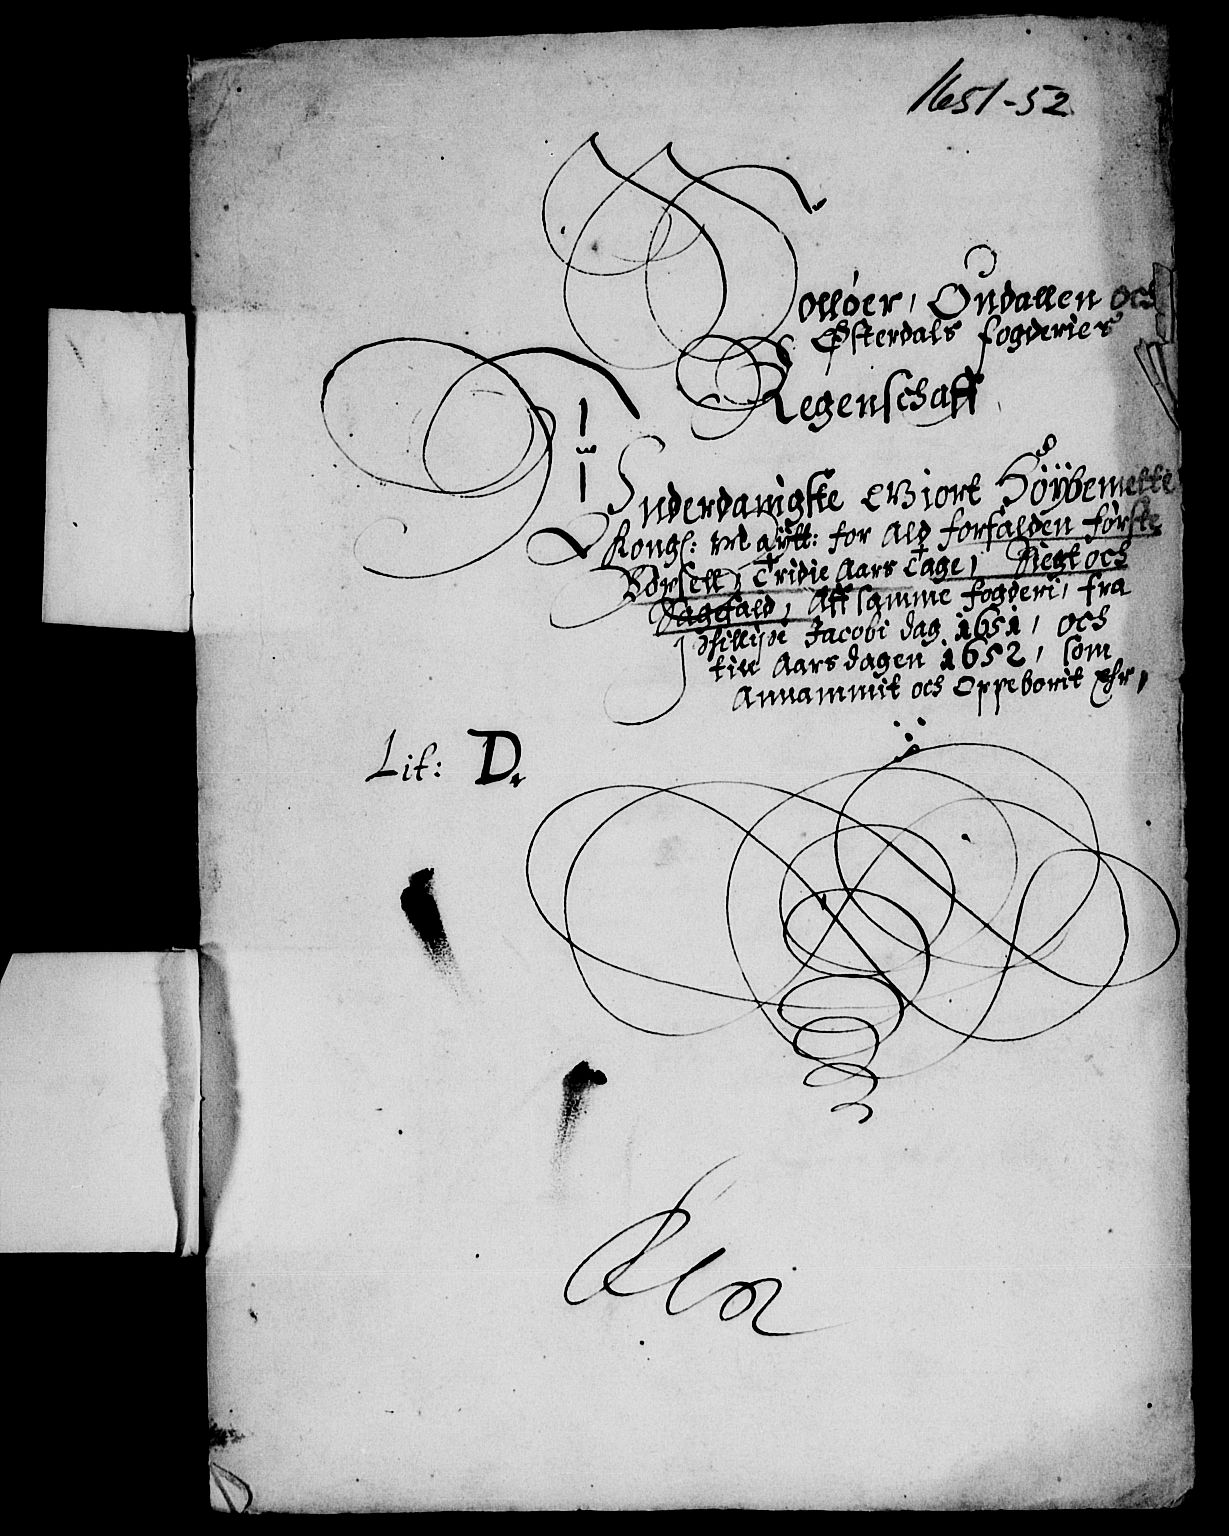 1651-52
Wolløer, Oudallen och
Østerdals fogderies
Regenschaff
Underdanigste Giort Høÿbemelte
Kongl: Maÿtt: for Alƿ forfalden første
BØrsell, Tridie Aars Tage, Siegt och
Sagefald, Aff samme fogderi, fra
Phillipi Jacobi dag 1651, och
till Aarsdagen 1652, som
Annammit och Oppeborit Ehr,
Lit: D.